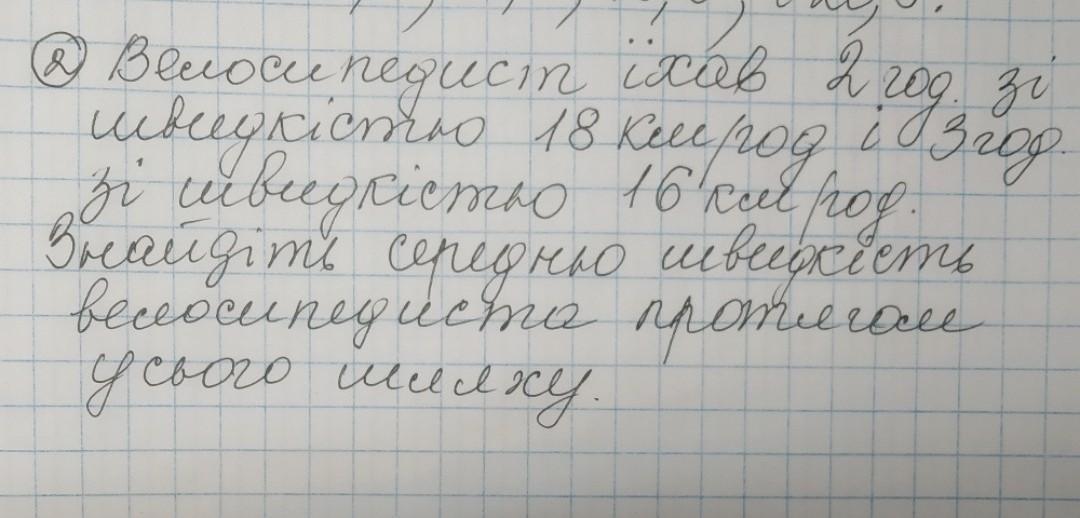 ② Велосипедист їхав 2 год. зі
швидкістю 18 км/год і 3 год.
зі швидкістю 16 км/год.
Знайдіть середню швидкість
велосипедиста протягом
усього шляху.